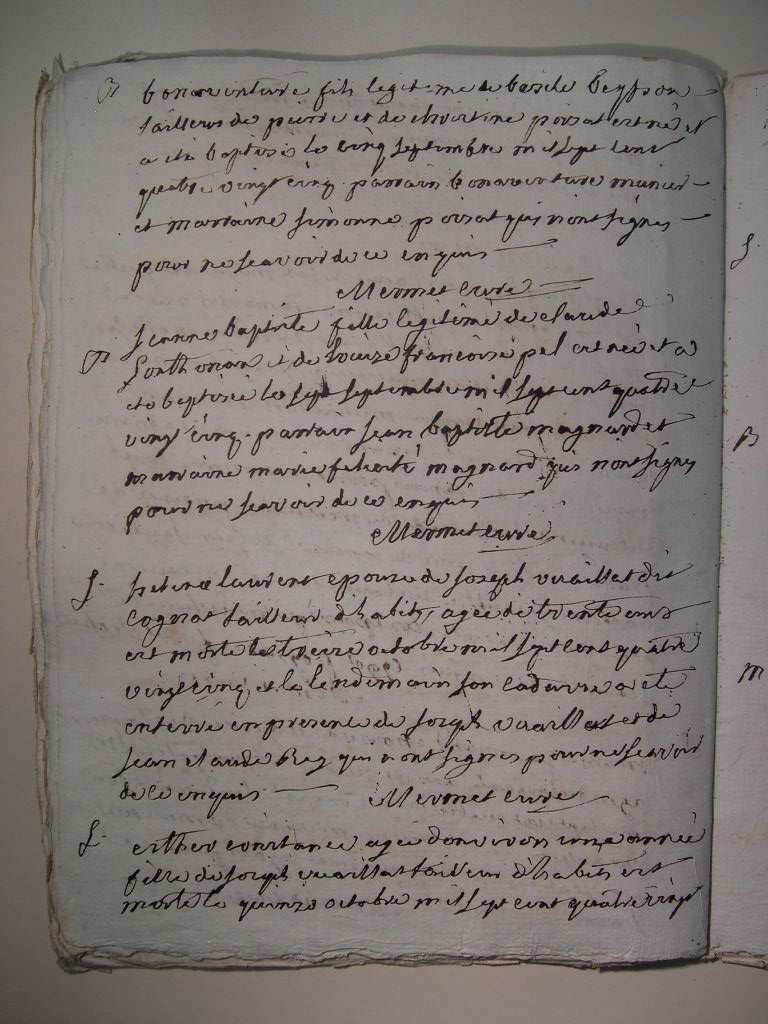 B bonaventure fils legitime de basile Beysson
tailleur de pierre et de christine poisat est né et
a été baptisé le cinq septembre mil sept cent
quatre vingt cinq. parrain bonaventure munier
et marraine simonne poisat qui n'ont signes
pour ne scavoir de ce enquis
Mermet curé
B jeanne baptiste fille legitime de claude
Sonthonax et de louize françoise pel est née et a
eté baptisée le sept septembre mil sept cent quatre
vingt cinq. parrain jean baptiste magnard et
marraine marie felicité magnard qui n'ont signes
pour ne scavoir de ce enquis
Mermet curé
S. laurent epouze de joseph vuaillat dit
tailleur d'habits, agée de trente ans
est morte le treize octobre mil sept cent quatre
vingt cinq et le lendemain son cadavre a eté
enterré en presence de joseph vuaillat et de
jean claude Rey qui n'ont signes pour ne scavoir
de ce enquis Mermet curé
S. esther constance agée d'environ une année
fille de joseph vuaillat tailleur d'habits est
morte le quinze octobre mil sept cent quatre vingt
S.
B
M